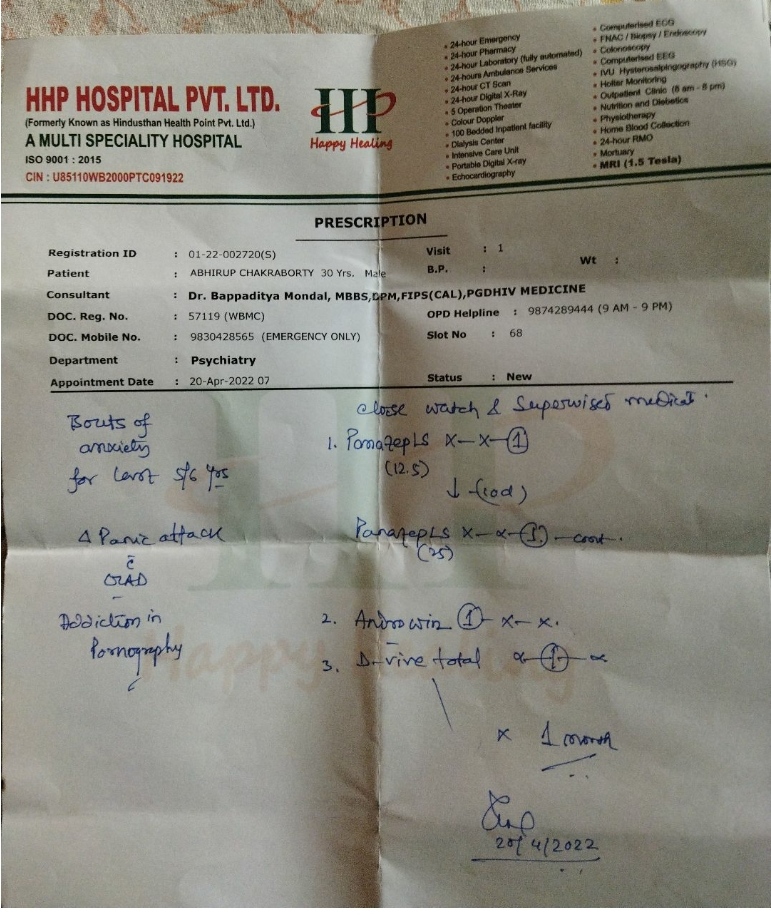 HHP HOSPITAL PVT. LTD.
(Formerly Known as Hindusthan Health Point Pvt. Ltd.)
A MULTI SPECIALITY HOSPITAL
ISO 9001 : 2015
CIN : U85110WB2000PTC091922
HHP
Happy Healing
• 24-hour Emergency
• 24-hour Pharmacy
• 24-hour Laboratory (fully automated)
• 24-hours Ambulance Services
• 24-hour CT Scan
• 24-hour Digital X-Ray
• 5 Operation Theater
• Colour Doppler
• 100 Bedded Inpatient facility
• Dialysis Center
• Intensive Care Unit
• Portable Digital X-ray
• Echocardiography
• Computerised ECG
• FNAC / Biopsy / Endoscopy
• Colonoscopy
• Computerised EEG
• IVU Hysterosalpingography (HSG)
• Holter Monitoring
• Outpatient Clinic (8 am - 8 pm)
• Nutrition and Dietetics
• Physiotherapy
• Home Blood Collection
• 24-hour RMO
• Mortuary
• MRI (1.5 Tesla)
PRESCRIPTION
Registration ID : 01-22-002720(S)
Visit : 1
Patient : ABHIRUP CHAKRABORTY 30 Yrs. Male
B.P. : Wt :
Consultant : Dr. Bappaditya Mondal, MBBS,DPM,FIPS(CAL),PGDHIV MEDICINE
DOC. Reg. No. : 57119 (WBMC)
OPD Helpline : 9874289444 (9 AM - 9 PM)
DOC. Mobile No. : 9830428565 (EMERGENCY ONLY)
Slot No : 68
Department : Psychiatry
Appointment Date : 20-Apr-2022 07
Status : New
Bouts of
anxiety
for last 5/6 yrs
Δ Panic attack
c̄
Addiction in
Pornography
close watch & Supervised
1. LS x-x-1
(12.5)
↓
LS x-x-1
(25)
2. 1-x-x.
3. D-vive total x-1-x
x 1 month
20/4/2022